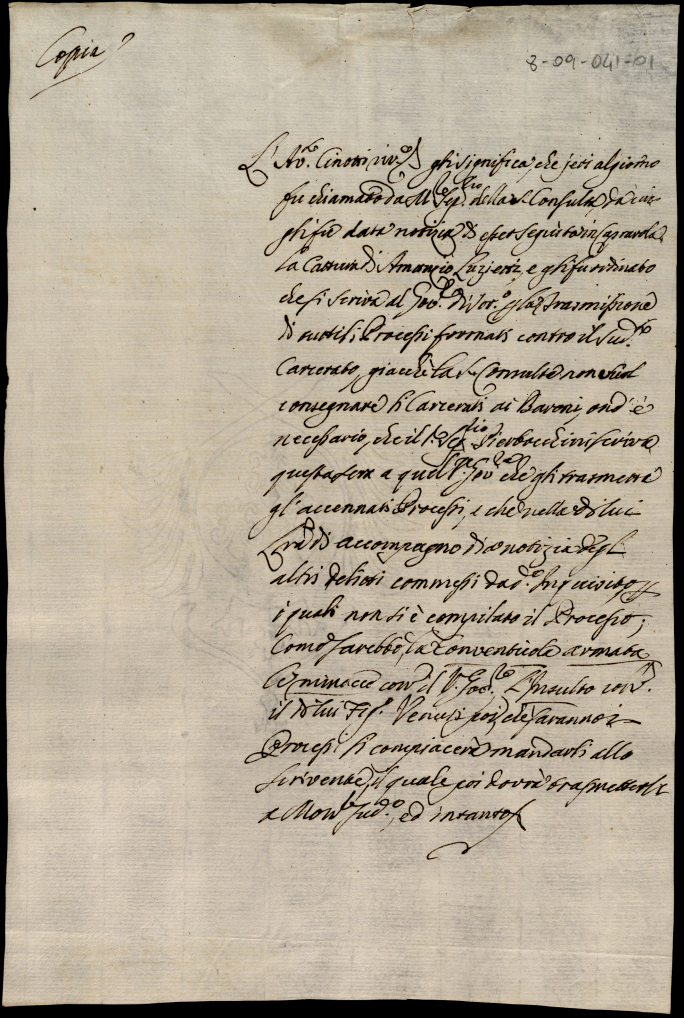 Copia
8-09-041-01
L'Avv.to Cinotti riv.e gli significa, che jeri al giorno
fu chiamato da M. Seg.rio della S. Consulta, da cui
gli fu data notizia di esser seguita in
la Cattura di Amanzio Luzjerzi, e gli fu ordinato
che si scriva al Gov.re di Sor.o p la trasmissione
di tutti li Processi formati contro il Sud.to
Carcerato, giacchè la S. Consulta non vuol
consegnare li Carcerati ai Baroni, ond'è
necessario, che il Sig. Pierbacchini scriva
questa sera a quel Sig.e Gov.re che gli trasmetta
gl'accennati Processi, e che nella di lui
di accompagno dia notizia degl
altri delitti commessi da d.o Inquisito p
i quali non si è compilato il Processo;
Come sarebbe, la Conventicole armata
Le minacce con.o il V. Gov.re L'Insulto con.o
il di lui Fis. Venuti poi, che saranno i
Processi si compiacerà mandarli allo
Scrivente, il quale poi dovrà trasmetterli
a Mon.e sud.o, ed intanto